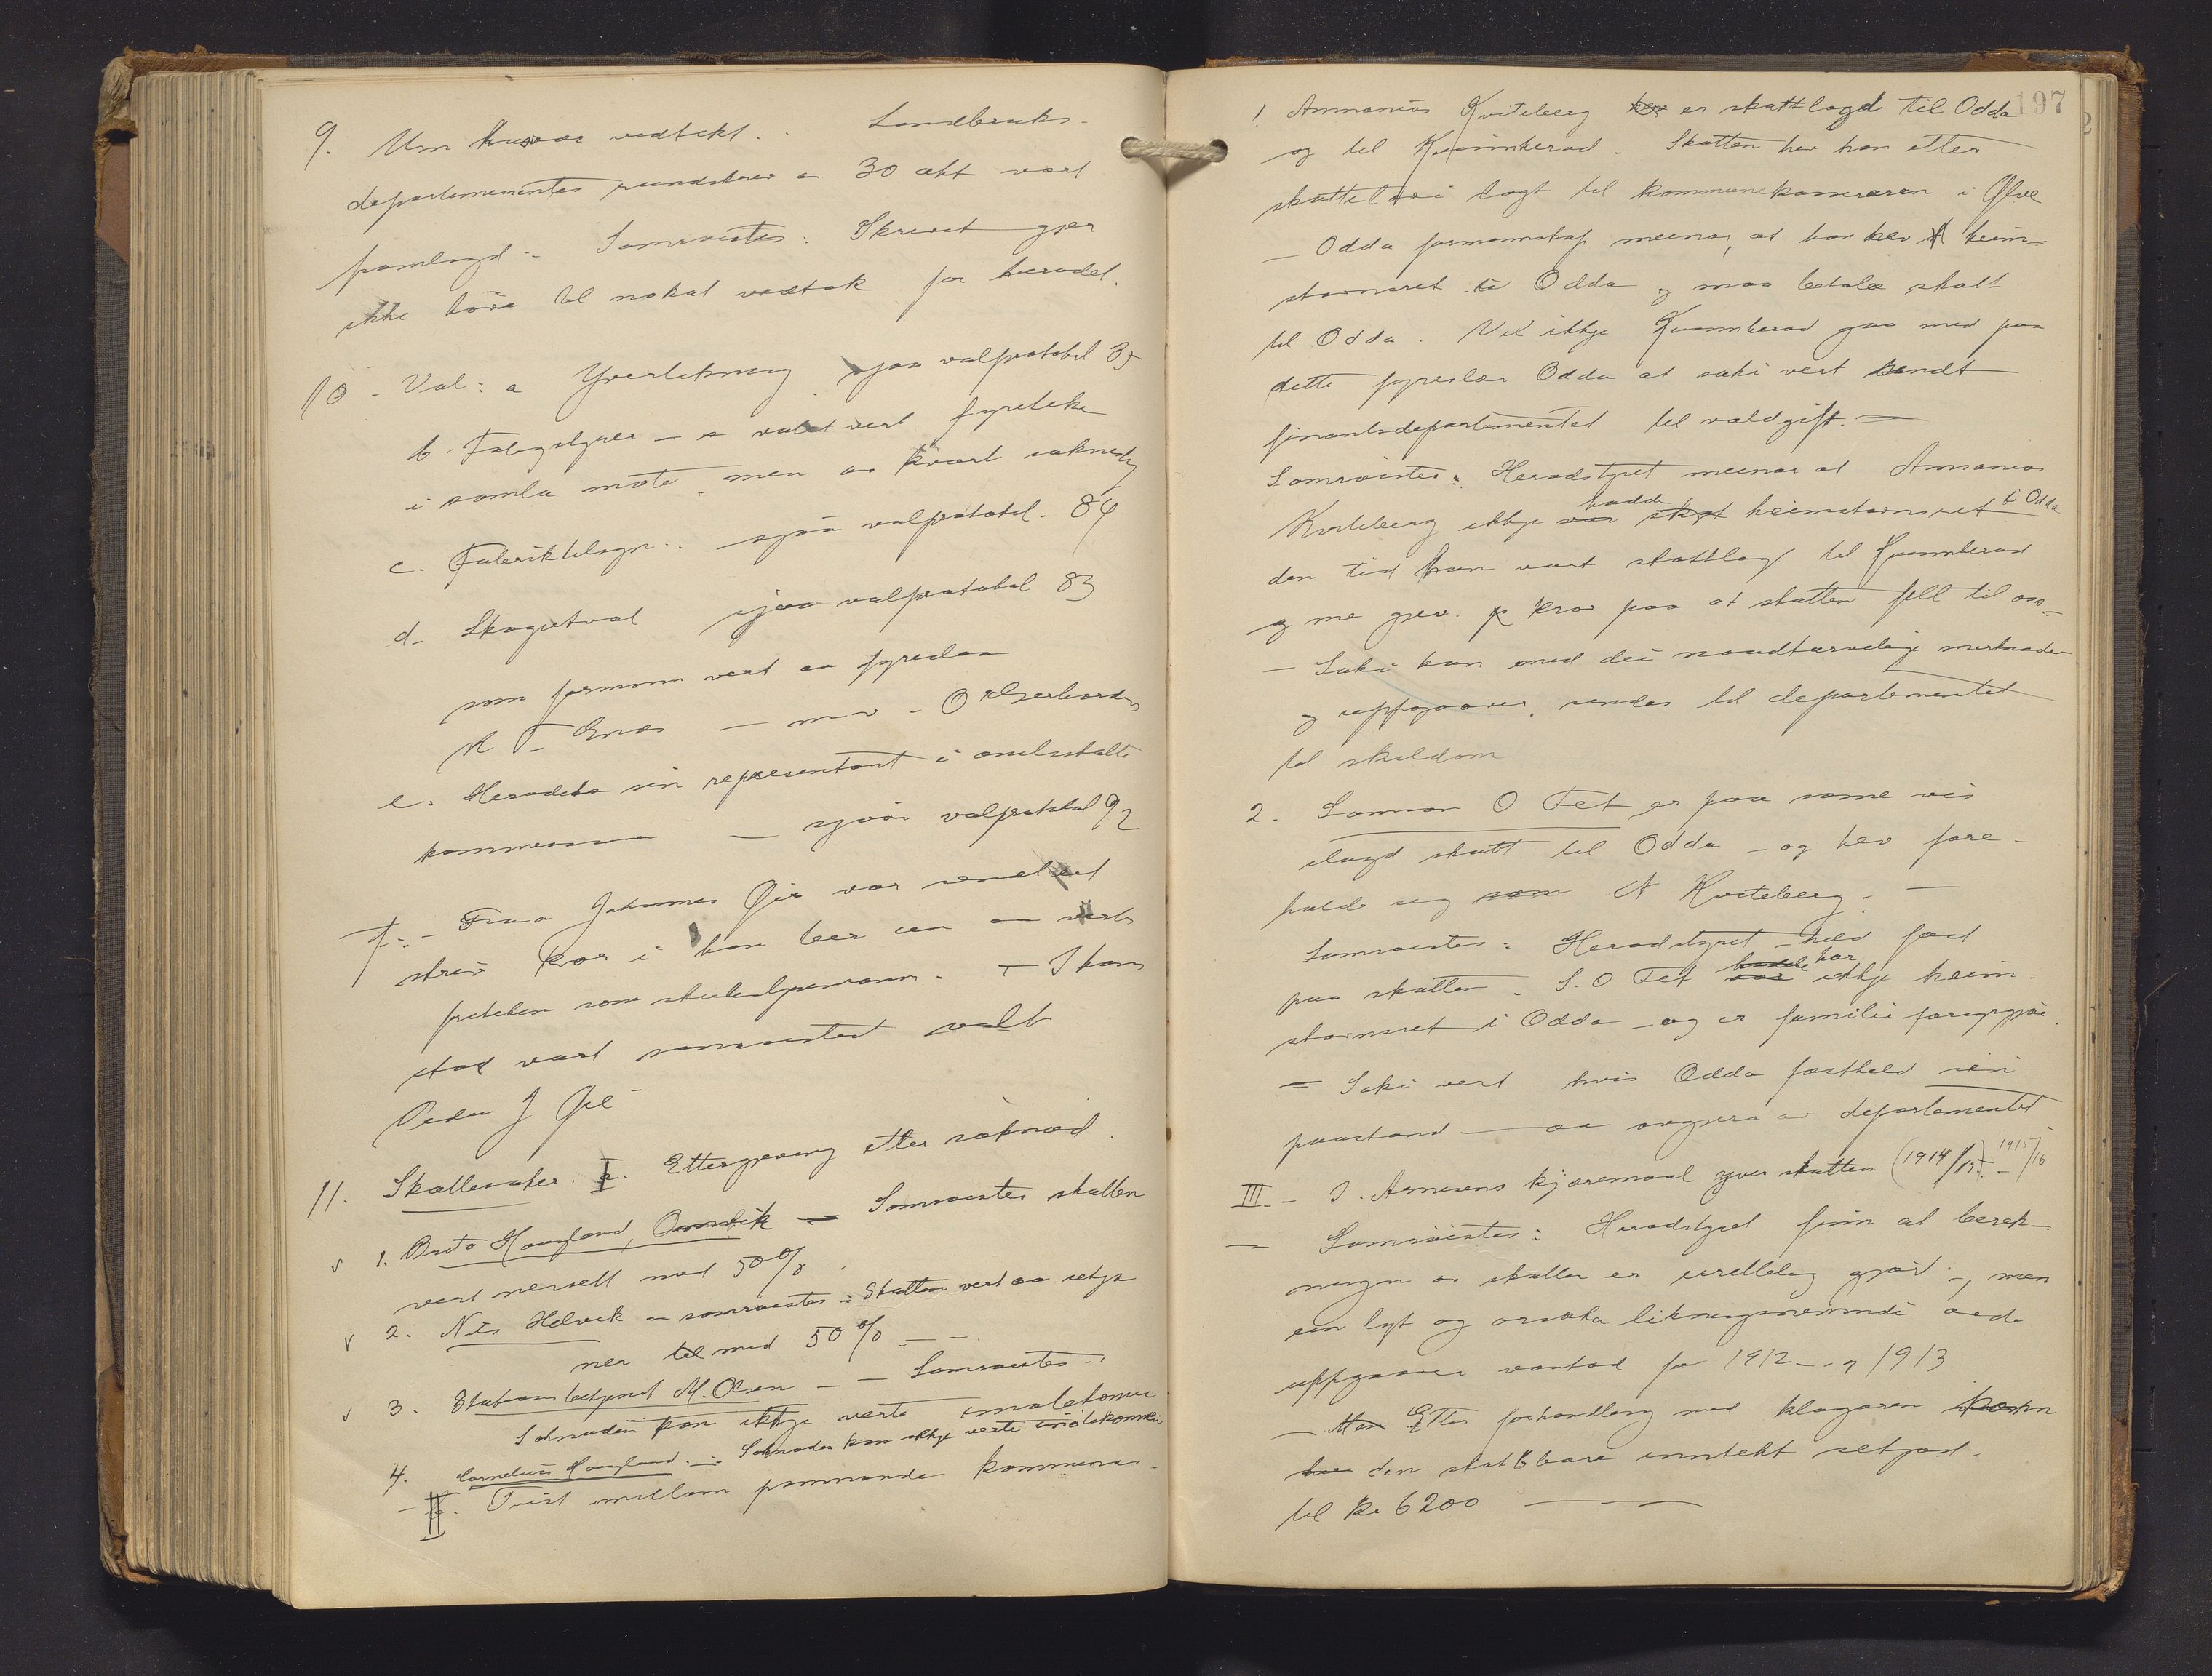 9. Um husvær vedtekt. Landbruks-
departementes rundskriv a 30 okt vart
framlagd. Samrøistes: Skrivet gjer
ikke høve til nokot vedtak for heradet.
10 - Val: a Yverlikning sjaa valprotokol 35
b. - valet vert fyreteke
i samla møte, men av kvart sokned
c. Fabriktilsyn. sjaa valprotokol. 84
d. Skogutval sjaa valprotokol 83
som formann vert aa fyredaa
K T Enes — m v - O Gerhards
e. Heradets sin representant i
— sjaa valprotokol 92
f. - Fraa Johannes Øie var
skriv kor i han beer um aa verta
friteken som - I hans
stad vart samrøistes valt
Peder J Øie
11. Skattesaker. I. Ettergjeving etter søknad.
v 1. Brita Haugland, Omvik — Samrøistes skatten
vert nersett med 50 %.
v 2. Nils Helvik - samrøistes: Skatten vert aa setja
ner til med 50 % — —
v 3. Stasjonsbetjent M. Olsen — — Samrøistes:
Søknaden kan ikkje verta imøtekomne
4. Cornelius Haugland. -: Søknaden kan ikkje verta imøtekomne
- II. Tvist millom kommunar.
197
1. Annanias Kviteberg hev er skattlagd til Odda
og til Kvinnherad. Skatten hev han etter
skattelovi lagt til kommunekasseraren i Ølve
— Odda formannskap meinar, at han hev heim-
stavnsret i Odda og maa betala skatt
til Odda. Vil ikkje Kvinnherad gaa med paa
dette fyreslær Odda at saki vert sendt
finantsdepartementet til valdgift. —
Samrøistes: Heradstyret meinar at Annanias
Kviteberg ikkje var hadde heimstavnsret i Odda
den tid han vart skattlagd til Kvinnherad
og me gjev krav paa at skatten fell til oss. -
- Saki kan med dei naudturvelige merknader
og uppgaaver sendas til departementet
til skildom
2. Samson O Tet er paa same vis
ilagd skatt til Odda - og hev fore-
halde seg som A Kviteberg. —
Samrøistes: Heradstyret held fast
paa skatten. S. O Tet hadde har ikkje heim-
stavnsret i Odda - og er familieforsyrgjar.
- Saki vert hvis Odda fastheld sin
paastand — aa avgjera av departementet
III. - J. Arnesens kjæremaal yver skatten (1914/15) - 1915/16
— Samrøistes: Heradstyret finn at berek-
ningen av skatten er urettelig gjord -, men
ein lyt og orsaka likningsnemndi aede
uppgaaver vantad for 1912 - og 1913
— Men Etter forhandling med klagaren
hev den skattbare inntekt setjast
til kr 6200 — —